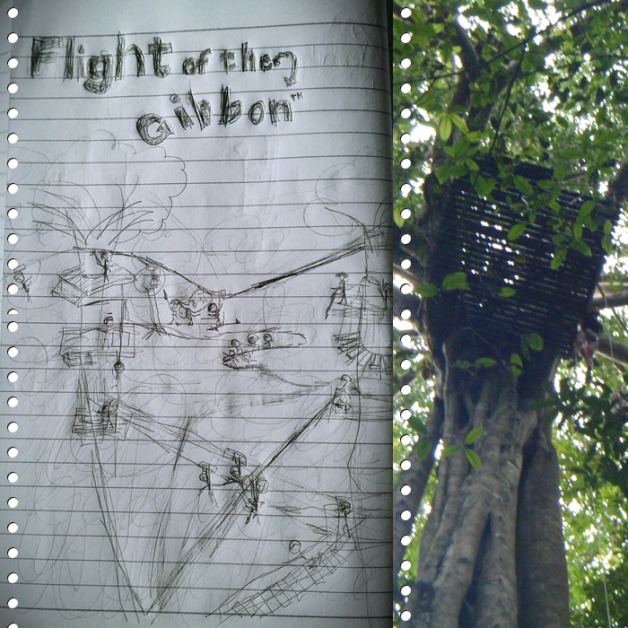 Flight of the
Gibbon™